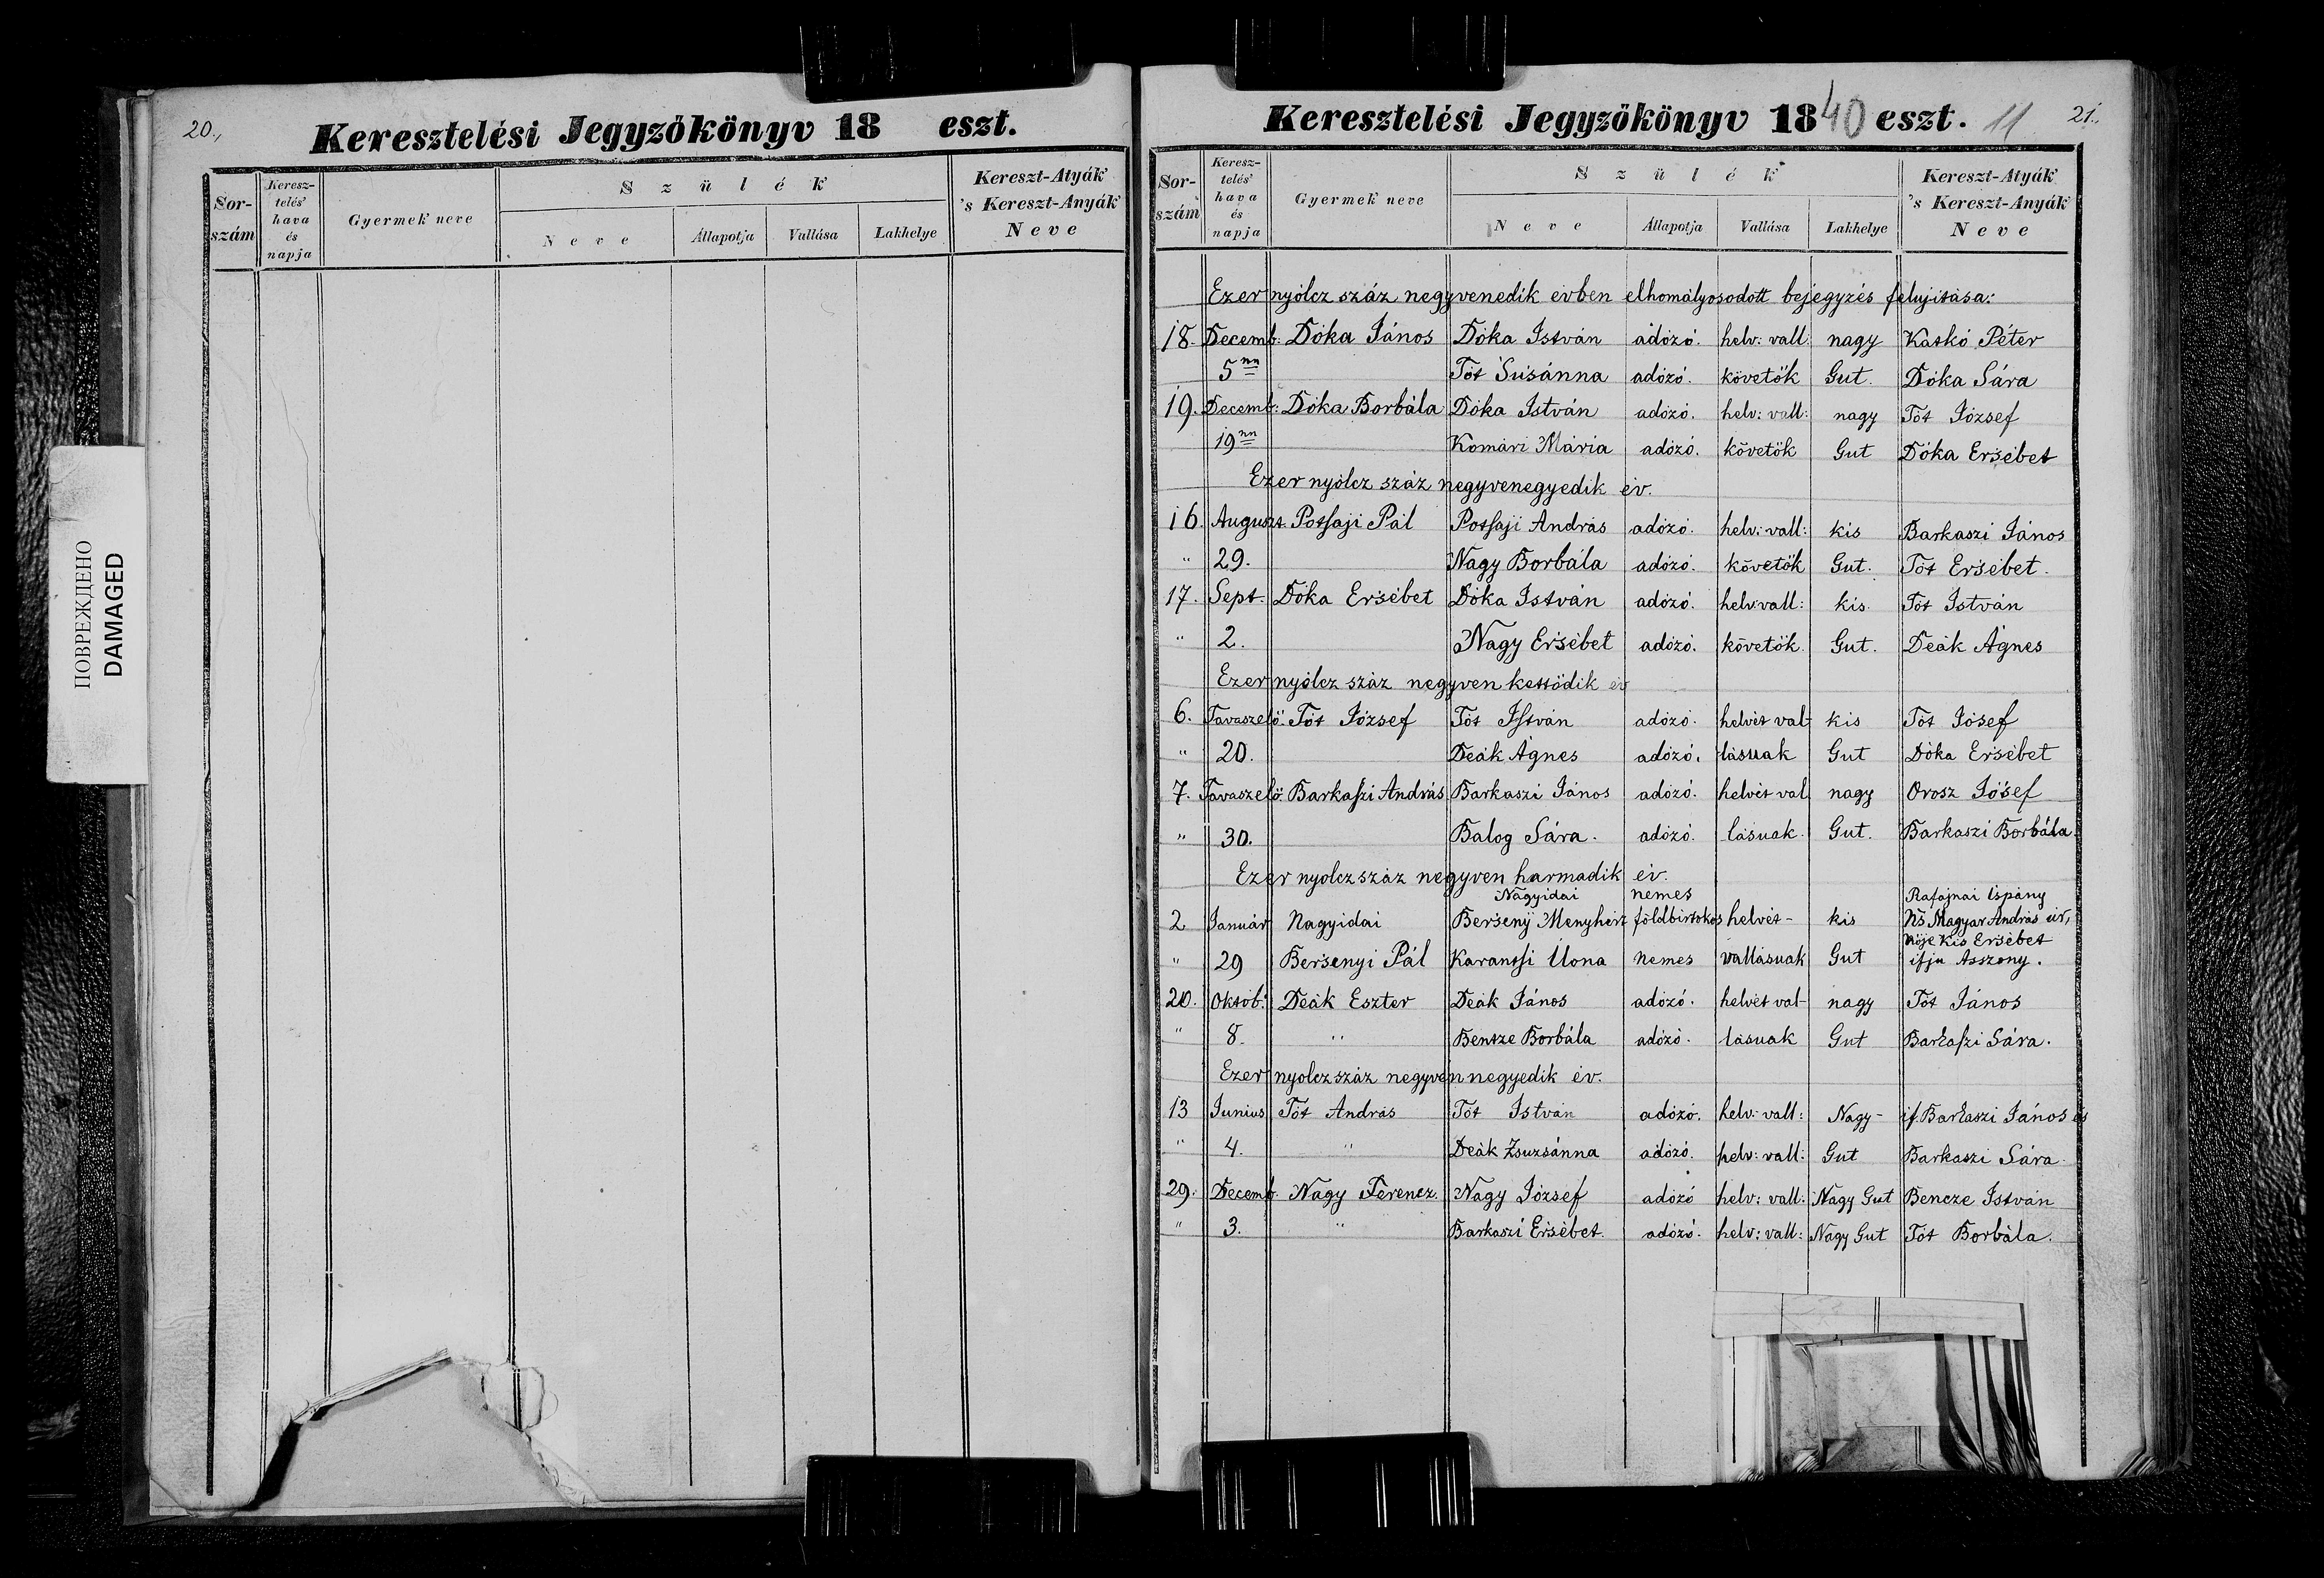 20.,
Keresztelési Jegyzőkönyv 18 eszt.
Sor-szám
Keresz-telés' hava és napja
Gyermek' neve
Szülék'
Neve
Állapotja
Vallása
Lakhelye
Kereszt-Atyák' 's Kereszt-Anyák' Neve
ПОВРЕЖДЕНО
DAMAGED
Keresztelési Jegyzőkönyv 1840 eszt. 11 21.
Sor-szám
Keresz-telés' hava és napja
Gyermek' neve
Szülék'
Neve
Állapotja
Vallása
Lakhelye
Kereszt-Atyák' 's Kereszt-Anyák' Neve
Ezer nyólcz száz negyvenedik évben elhomályosodott bejegyzés felujitása:
18. Decemb: Dóka János Dóka István adózó. helv: vall: nagy Katkó Péter
5nn Tót Súsánna adózó. követök Gut. Dóka Sára
19. Decemb: Dóka Borbála Dóka István adózó. helv: vall: nagy Tót József
19nn Komári Mária adózó. követök Gut Dóka Ersébet
Ezer nyólcz száz negyvenegyedik év.
16. Auguszt. Potsaji Pál Potsaji András adózó. helv: vall: kis Barkaszi János
" 29. Nagy Borbála adózó. követök Gut. Tót Ersébet.
17. Sept. Dóka Ersébet Dóka István adózó. helv: vall: kis. Tót István
" 2. Nagy Ersébet adózó. követök. Gut. Deák Ágnes
Ezer nyólcz száz negyven kettödik év
6. Tavaszelö: Tót József Tót István adózó. helvét val- kis Tót Jósef
" 20. Deák Ágnes adózó. lásuak Gut Dóka Ersébet
7. Tavaszelö: Barkaszi András Barkaszi János adózó. helvét val nagy Orosz Jósef
" 30. Balog Sára. adózó. lásuak. Gut. Barkaszi Borbála.
Ezer nyolcz száz negyven harmadik év.
Nagyidai nemes Rafajnai Ispány
2 Január Nagyidai Bersenyi Menyhért földbirtokos helvét- kis Ns. Magyar András úr,
nöje Kis Ersébet
" 29 Bersenyi Pál Karantsi Ilona nemes vallásuak Gut ifju Asszony.
20. Oktob: Deák Eszter Deák János adózó. helvét val- nagy Tót János
" 8. " Bentze Borbála adózó. lásuak Gut Barkaszi Sára.
Ezer nyolcz száz negyven negyedik év.
13 Junius Tót András Tót István adózó. helv: vall: Nagy- if. Barkaszi János és
" 4. " Deák Zsuzsánna adózó. helv: vall: Gut Barkaszi Sára.
29. Decemb. Nagy Ferencz. Nagy József adózó helv: vall: Nagy Gut Bencze István
" 3. " Barkaszi Ersébet. adózó. helv: vall: Nagy Gut Tót Borbála.